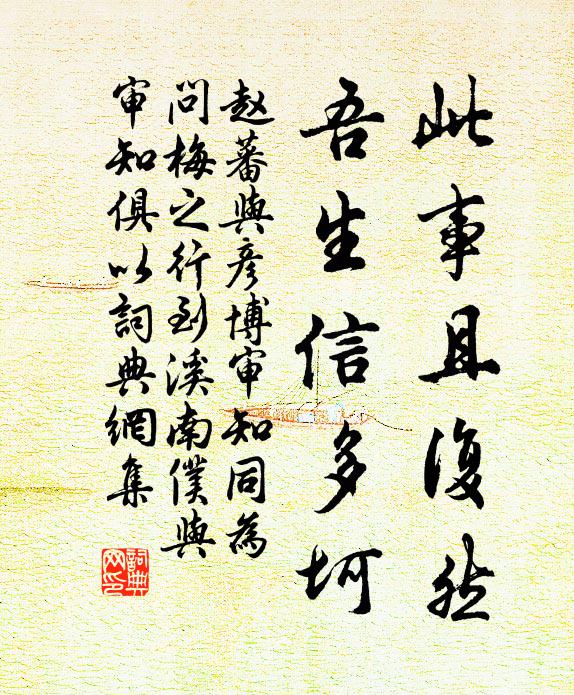 此事且復然
吾生信多坷
赵蕃與彦博审知同為
问梅之行到溪南僕與
审知俱以詞典網集
詞典
网印